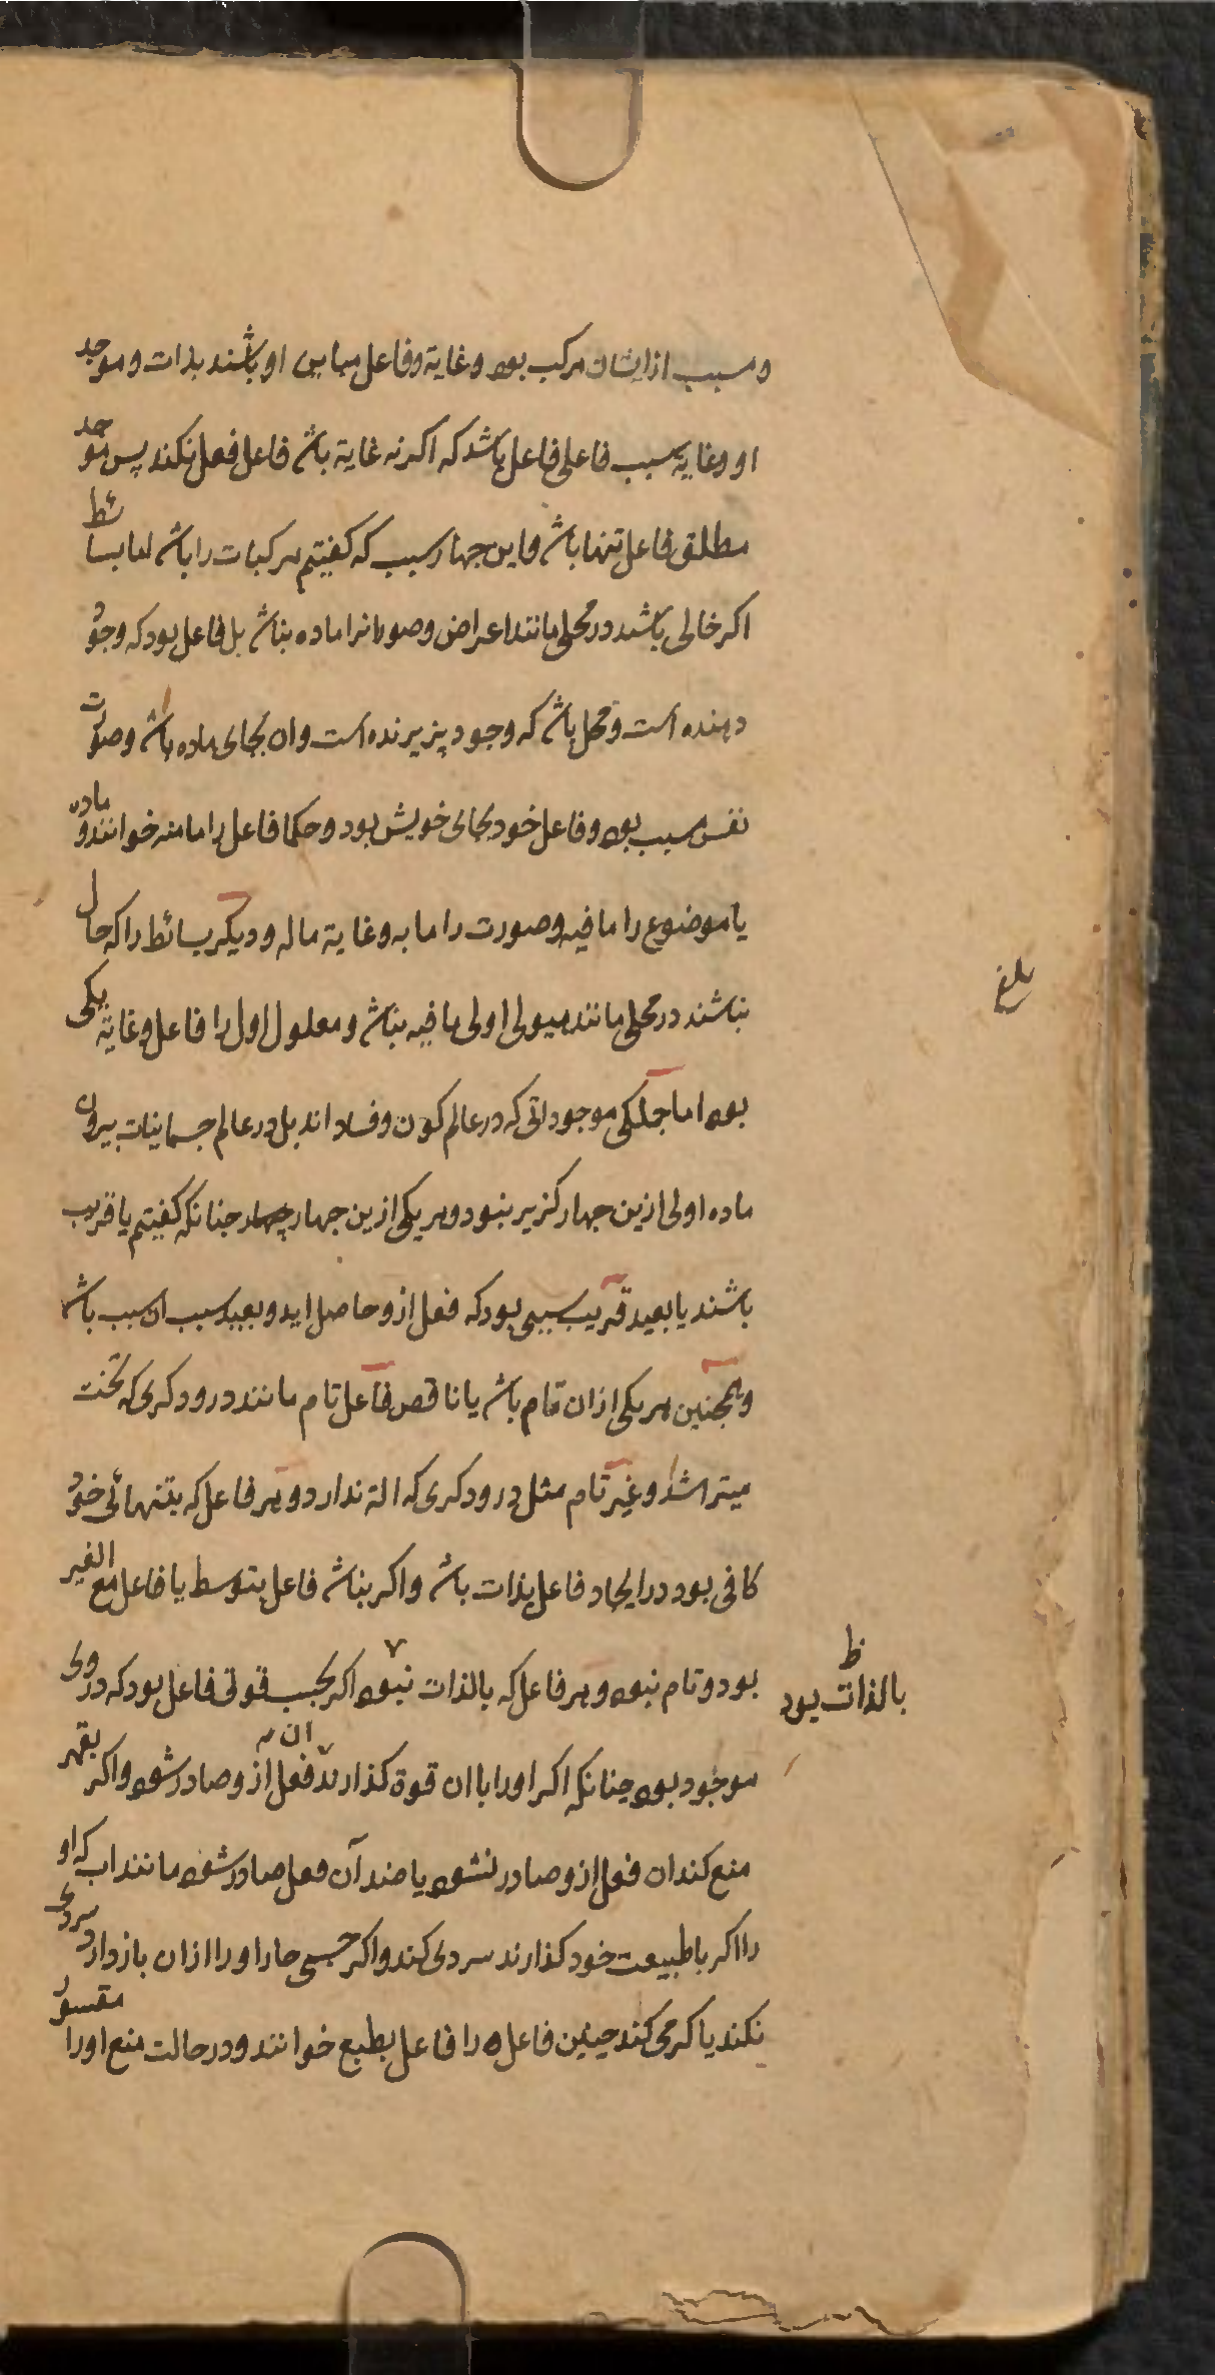 و مسبب از ایشان مرکب بود و غایة و فاعل مباین او باشند بذات و موجد
او و غایة سبب فاعلی فاعل باشد که اکر نه غایة باشد فاعل فعل نکند پس موجد
مطلق فاعل تنها باشد و این جهار سبب که کفیتم مرکبات را باشد اما بسائط
اکر خالی باشند در محلی مانند اعراض و صور انرا ماده نباشد بل فاعل بود که وجود
دهنده است و محل باشد که وجود پزیرنده است و ان بجای ماده باشد و صورت
نفس مسبب بود و فاعل خود بجای خویش بود و حکما فاعل را ما منه خوانند و ماده
یا موضوع را ما فیه و صورت را ما به و غایة ما له و دیکر بسائط را که حال
نباشند در محلی مانند هیولی اولی ما فیه نباشد و معلول اول را فاعل و غایة یکی
بود اما جملکی موجوداتی که در عالم کون و فساد اند بل در عالم جسمانیات بیرون
ماده اولی ازین جهار کزیر نبود و هر یکی ازین جهار جهار جنانکه کفیتم یا قریب
باشند یا بعید قریب سببی بود که فعل ازو حاصل اید و بعید سبب ان سبب باشد
و همجنین هر یکی ازان تمام باشد یا ناقص فاعل تام مانند درودکری که تخت
میتراشد و غیر تام مثل درودکری که الة ندارد و هر فاعل که بتنهائی خود
کافی بود در ایجاد فاعل بذات باشد و اکر نباشد فاعل بتوسط یا فاعل مع الغیر
بود و تام نبود و هر فاعل که بالذات نبود اکر بحسب قوتی فاعل بود که در وی
بالذات بود ظ
موجود بود جنانکه اکر او را با ان قوة کذارند ان فعل ازو صادر شود و اکر بقهر
منع کند ان فعل ازو صادر نشود یا ضد آن فعل صادر شود مانند اب که او
را اکر با طبیعت خود کذارند سردی کند و اکر جسمی حار او را ازان باز دارد سردی
نکند یا کرمی کند جنین فاعل را فاعل بطبع خوانند و در حالت منع او را مقسور